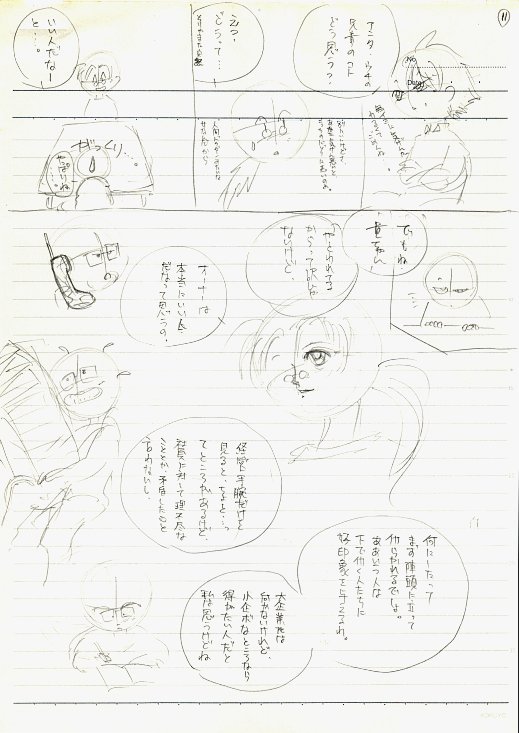 11
No.
Date
アンタ、ウチの
兄貴のコト
どう思う?
えっ、
どうって…
いい人だなー
と…。
がっくり…
やっぱりね
でもね
貴さん
やとわれてる
からって訳じゃ
ないけど、
オーナーは
本当にいい人
だなって思うの。
経営手腕だけを
見ると、ちょと…っ
てところがあるけど、
社員に対して理不尽な
こととか矛盾したこと
言わないし。
何にしたって
まず陣頭に立って
働らかれるでしょ。
ああいう人は
下で働く人たちに
好印象を与えるわ。
大企業には
向かないけれど、
小企業なところなら
得がたい人だと
私は思うけどね
KOKUYO